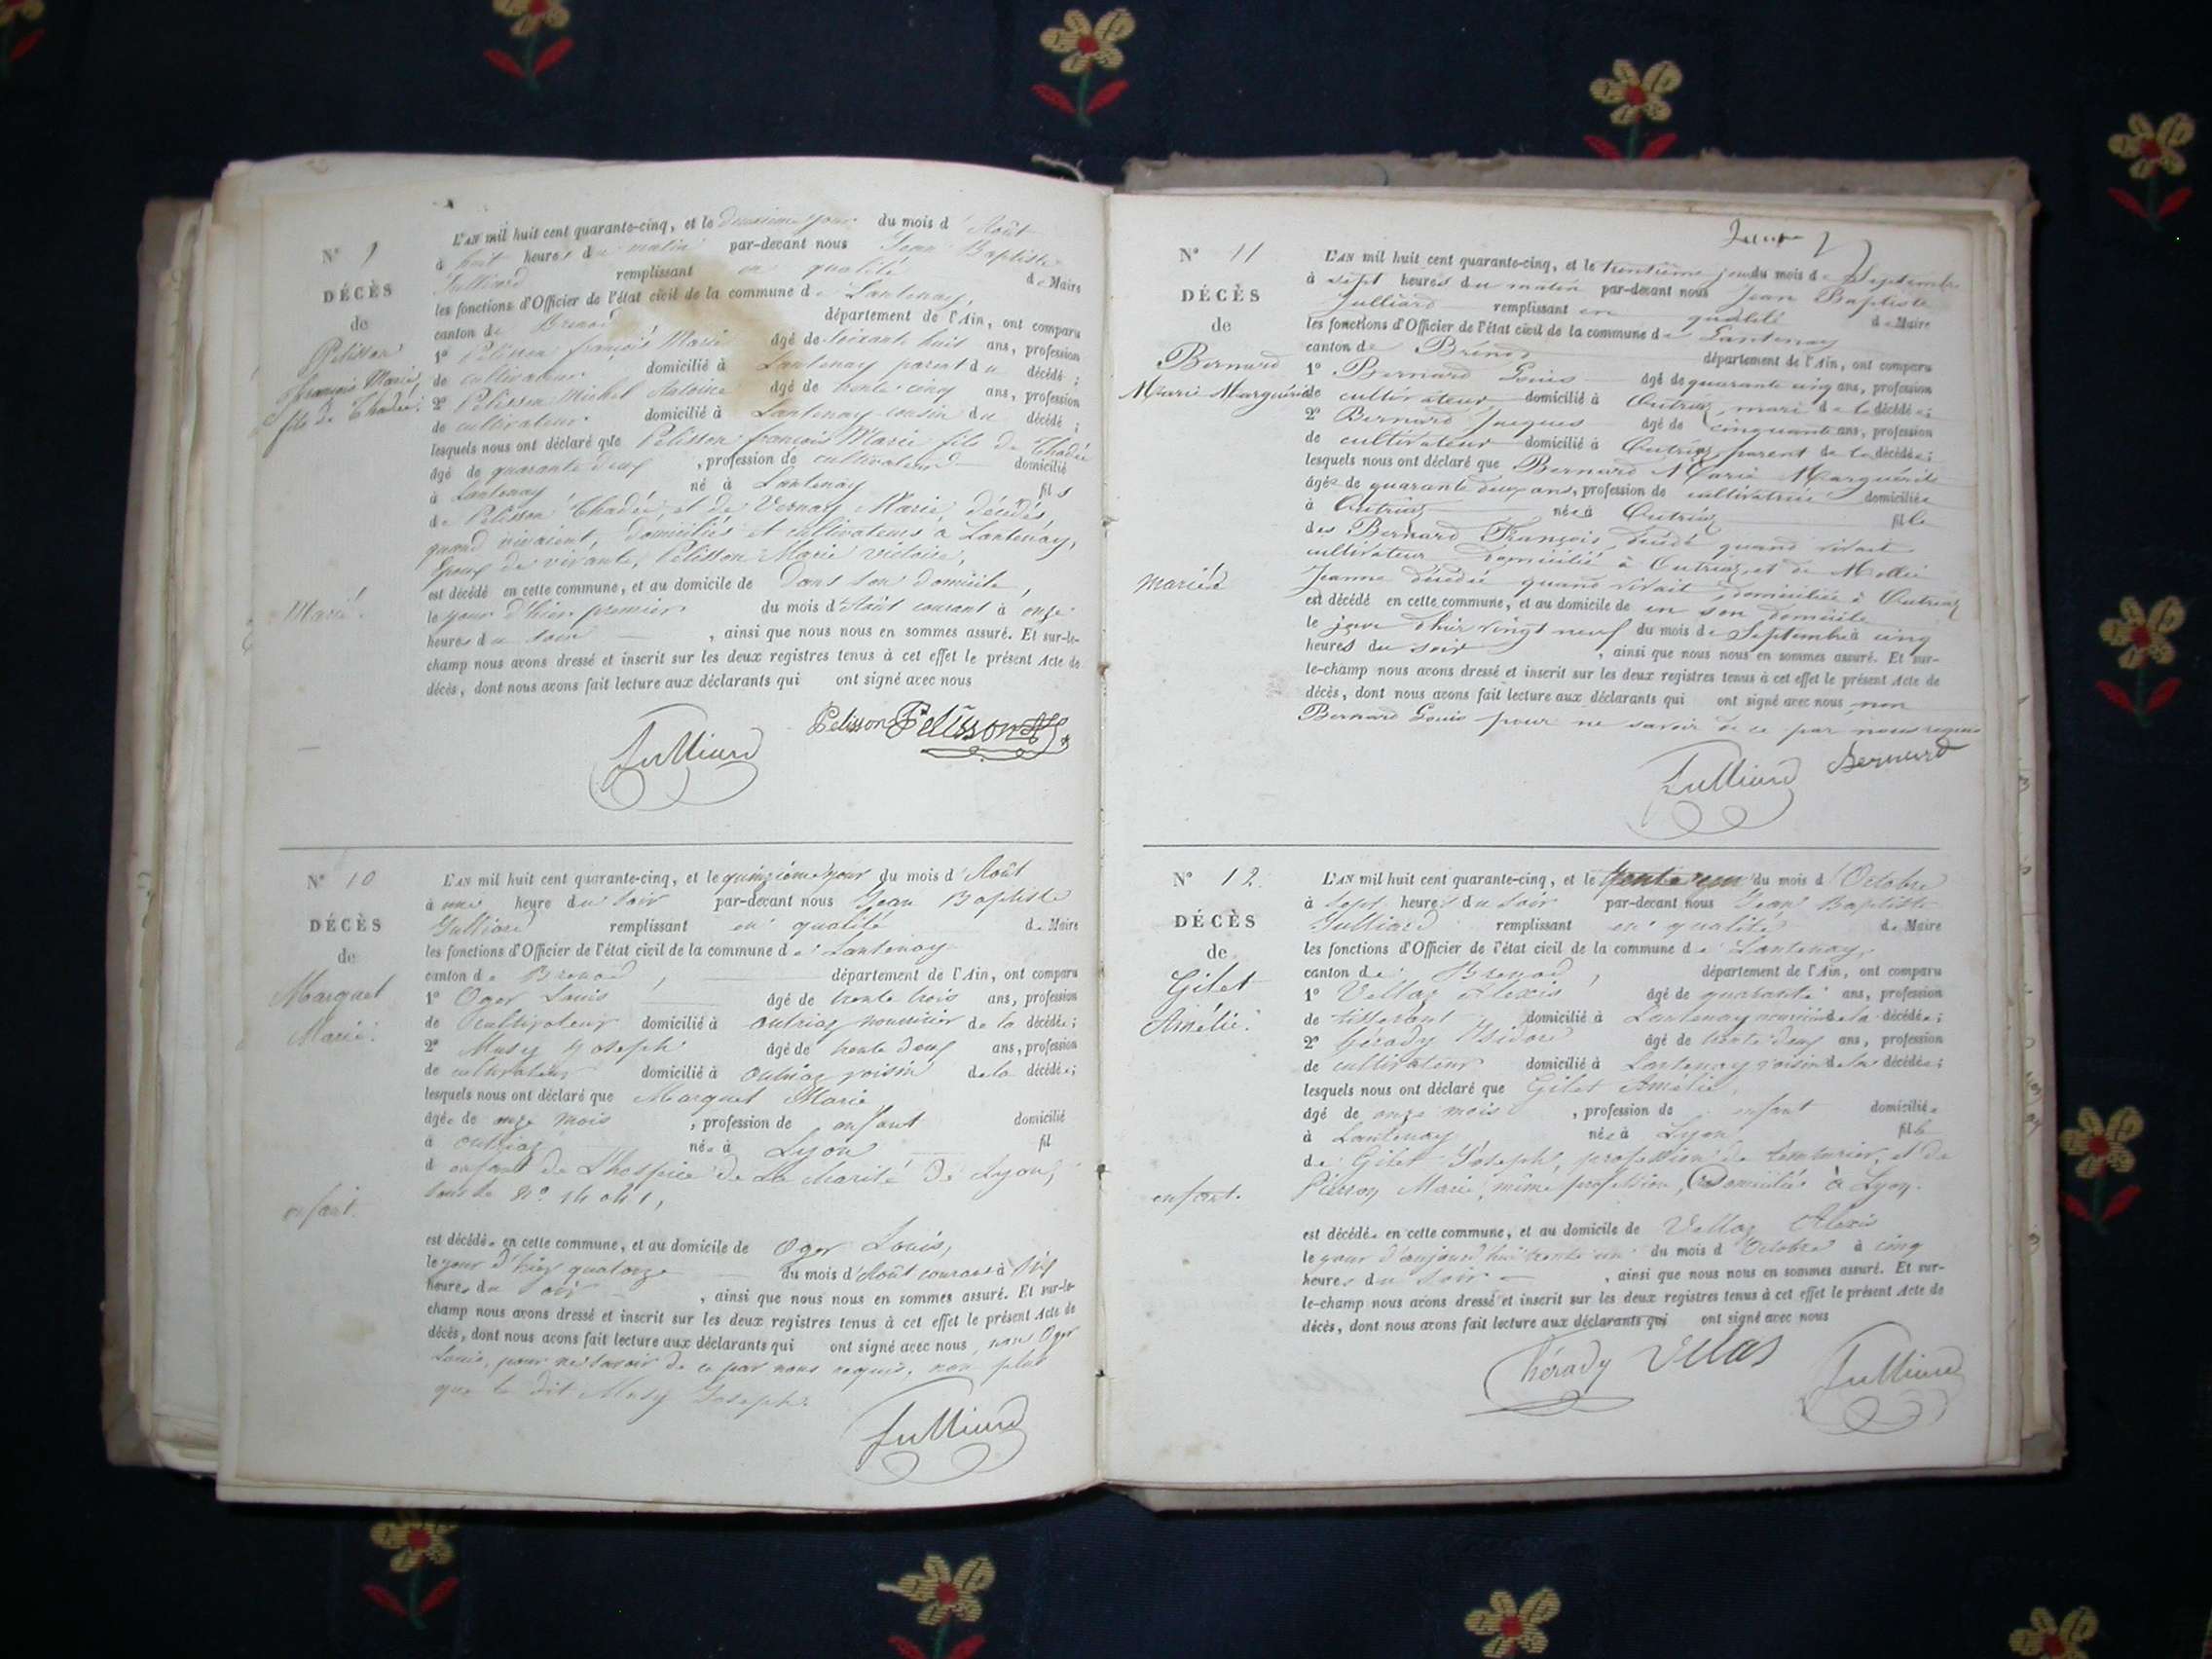 N° 9
DÉCÈS
de
Pelisson
françois Marie,
fils de Thadée.
Marié.
L'AN mil huit cent quarante-cinq, et le deuxième jour du mois d'Août
à huit heures du matin par-devant nous Jean Baptiste
Julliard remplissant en qualité de Maire
les fonctions d'Officier de l'état civil de la commune de Lantenay,
canton de Brenod département de l'Ain, ont comparu
1° Pelisson françois Marie âgé de soixante huit ans, profession
de cultivateur domicilié à Lantenay parent du décédé;
2° Pelisson Michel Antoine âgé de trente cinq ans, profession
de cultivateur domicilié à Lantenay cousin du décédé;
lesquels nous ont déclaré que Pelisson françois Marie fils de Thadée
âgé de quarante deux, profession de cultivateur domicilié
à Lantenay né à Lantenay fils
de Pelisson Thadée, et de Vernay Marie, décédés,
quand vivaient, domiciliés et cultivateurs à Lantenay,
Epoux de vivante, Pelisson Marie victoire,
est décédé en cette commune, et au domicile de Dans son domicile,
le jour d'hier premier du mois d'Août courant à onze
heures du soir, ainsi que nous nous en sommes assuré. Et sur-le-
champ nous avons dressé et inscrit sur les deux registres tenus à cet effet le présent Acte de
décès, dont nous avons fait lecture aux déclarants qui ont signé avec nous
Pelisson Pelisson
Julliard
N° 10
DÉCÈS
de
Marquet
Marie.
enfant.
L'AN mil huit cent quarante-cinq, et le quinzième jour du mois d'Août
à une heure du soir par-devant nous Jean Baptiste
Julliard remplissant en qualité de Maire
les fonctions d'Officier de l'état civil de la commune de Lantenay
canton de Brenod, département de l'Ain, ont comparu
1° Oger Louis âgé de trente trois ans, profession
de Cultivateur domicilié à outriaz nourricier de la décédée;
2° Musy Joseph âgé de trente deux ans, profession
de cultivateur domicilié à Outriaz voisin de la décédée;
lesquels nous ont déclaré que Marquet Marie
âgée de onze mois, profession de enfant domicilié
à outriaz née à Lyon fil
d enfant de L'hospice de La charité de Lyon,
sous le N° 14041,
est décédée en cette commune, et au domicile de Oger Louis,
le jour d'hier quatorze du mois d'Août courant à six
heures du soir, ainsi que nous nous en sommes assuré. Et sur-le-
champ nous avons dressé et inscrit sur les deux registres tenus à cet effet le présent Acte de
décès, dont nous avons fait lecture aux déclarants qui ont signé avec nous, non Oger
Louis, pour ne savoir de ce par nous requis, non plus
que le dit Musy Joseph.
Julliard
N° 11
DÉCÈS
de
Bernard
Marie Marguérite
mariée
L'AN mil huit cent quarante-cinq, et le trentième jour du mois de Septembre
à sept heures du matin par-devant nous Jean Baptiste
Julliard remplissant en qualité de Maire
les fonctions d'Officier de l'état civil de la commune de Lantenay
canton de Brénod département de l'Ain, ont comparu
1° Bernard Louis âgé de quarante cinq ans, profession
de cultivateur domicilié à Outriaz, mari de la décédée;
2° Bernard Jacques âgé de cinquante ans, profession
de cultivateur domicilié à Outriaz, parent de la décédée;
lesquels nous ont déclaré que Bernard Marie Marguérite
âgée de quarante deux ans, profession de cultivatrice domiciliée
à Outriaz née à Outriaz fille
des Bernard François, décédé quand vivait
cultivateur domicilié à Outriaz, et de Mollie
Jeanne décédée quand vivait, domiciliée à Outriaz
est décédé en cette commune, et au domicile de en son domicile
le jour d'hier vingt neuf du mois de Septembre à cinq
heures du soir, ainsi que nous nous en sommes assuré. Et sur-
le-champ nous avons dressé et inscrit sur les deux registres tenus à cet effet le présent Acte de
décès, dont nous avons fait lecture aux déclarants qui ont signé avec nous, non
Bernard Louis pour ne savoir de ce par nous requis
Julliard Bernard
N° 12.
DÉCÈS
de
Gilet
Amélie.
enfant.
L'AN mil huit cent quarante-cinq, et le trente un du mois d'Octobre
à sept heures du soir par-devant nous Jean Baptiste
Julliard remplissant en qualité de Maire
les fonctions d'Officier de l'état civil de la commune de Lantenay,
canton de Brenod, département de l'Ain, ont comparu
1° Vellaz Alexis âgé de quarante ans, profession
de tisserant domicilié à Lantenay nourricier de la décédée;
2° Thérady Isidore âgé de trente deux ans, profession
de cultivateur domicilié à Lantenay voisin de la décédée;
lesquels nous ont déclaré que Gilet Amélie,
âgé de onze mois, profession de enfant domiciliée
à Lantenay née à Lyon fille
de Gilet Joseph, profession de teinturier, et de
Pierron Marie, même profession, Domiciliés à Lyon.
est décédée en cette commune, et au domicile de Vellaz Alexis
le jour d'aujourd'hui trente un du mois d'Octobre à cinq
heures du soir, ainsi que nous nous en sommes assuré. Et sur-
le-champ nous avons dressé et inscrit sur les deux registres tenus à cet effet le présent Acte de
décès, dont nous avons fait lecture aux déclarants qui ont signé avec nous
Thérady Vellas Julliard